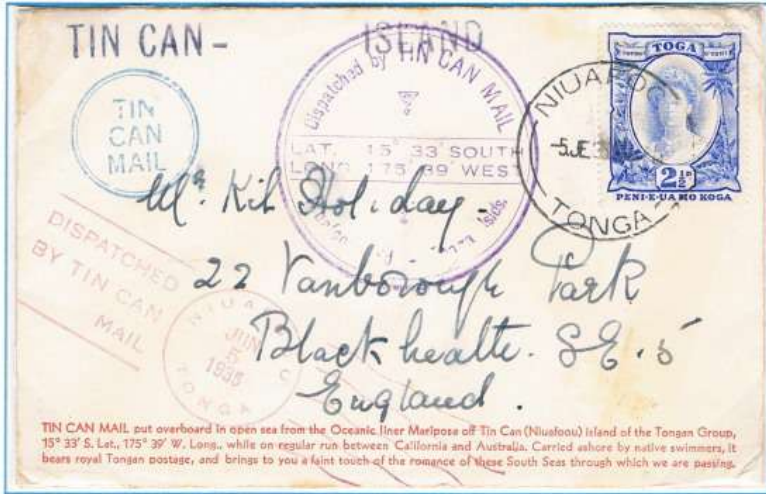 TIN CAN - ISLAND
TIN
CAN
MAIL
Dispatched by TIN CAN MAIL
LAT. 15° 33' SOUTH
LONG 175° 39' WEST
Islds.
TOGA
2½D
PENI-E-UA MO KOGA
NIUAFOO
-5 JE
TONGA
Mr. Kit Holiday -
22 Vanborough Park
Blackheath. S.E. 5
England.
DISPATCHED
BY TIN CAN
MAIL
JUN
5
1935
TONGA
TIN CAN MAIL put overboard in open sea from the Oceanic liner Mariposa off Tin Can (Niuafoou) Island of the Tongan Group,
15° 33' S. Lat., 175° 39' W. Long., while on regular run between California and Australia. Carried ashore by native swimmers, it
bears royal Tongan postage, and brings to you a faint touch of the romance of these South Seas through which we are passing.